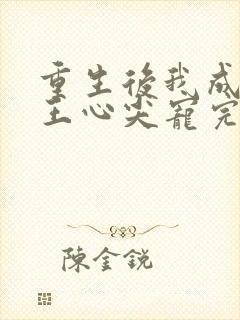 重生後我成
王心尖寵完
陳金銳